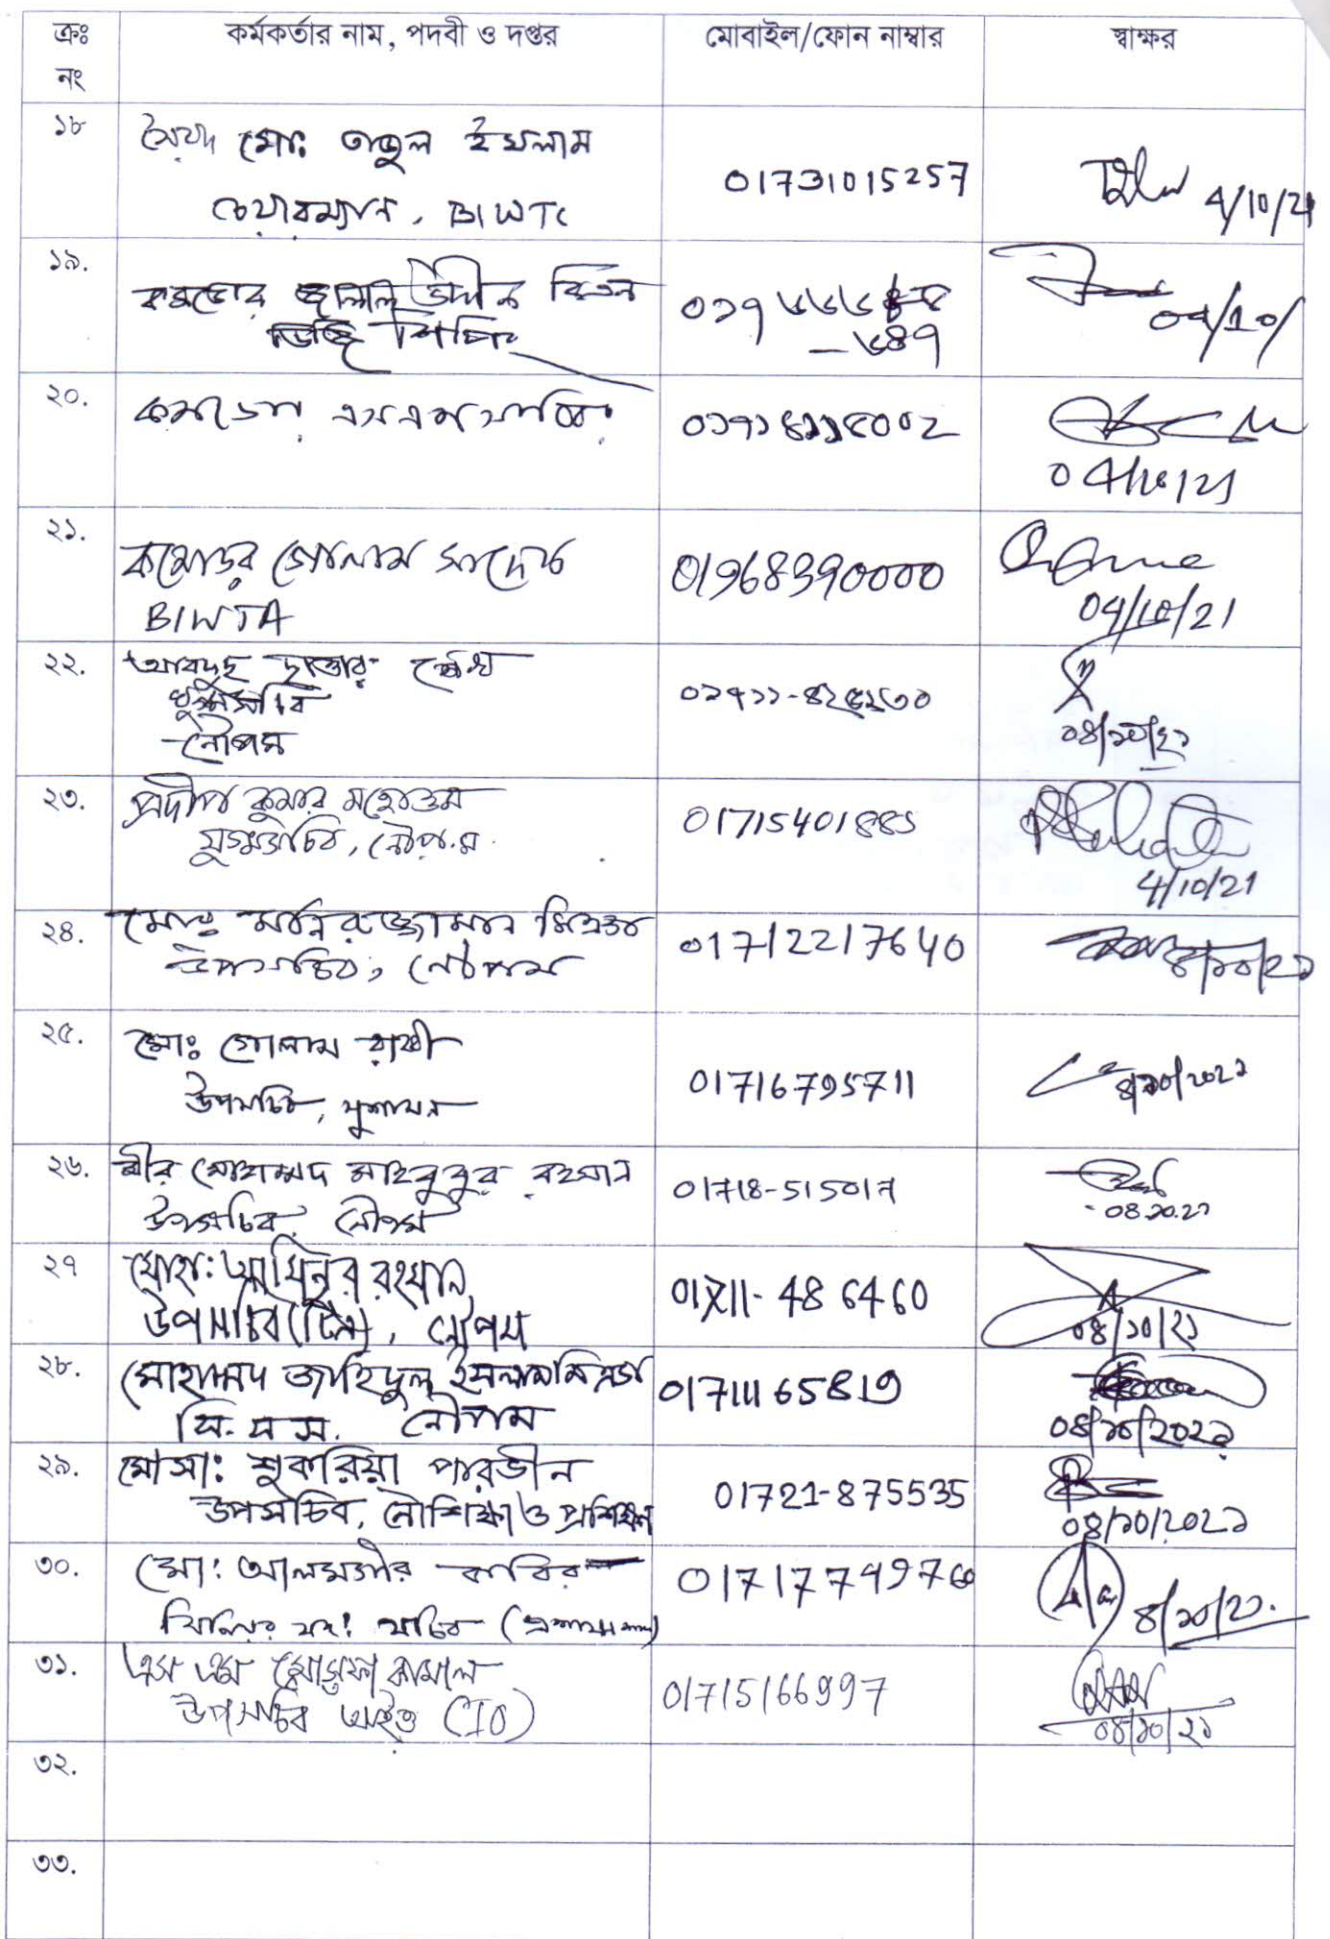 ক্রঃ নং কর্মকর্তার নাম, পদবী ও দপ্তর মোবাইল/ফোন নাম্বার স্বাক্ষর
১৮ সৈয়দ মোঃ তাজুল ইসলাম
চেয়ারম্যান, BIWTC 01731015257 4/10/21
১৯. কমডোর জালাল উদ্দীন
ডিজি শিপিং
২০. কমডোর এস এম
04/10/21
২১. কমোডর গোলাম সাদেক
BIWTA 01968390000 04/10/21
২২. আবদুছ ছাত্তার শেখ
যুগ্মসচিব
নৌপম ০৪/১০/২১
২৩. প্রদীপ কুমার মহোত্তম
যুগ্মসচিব, নৌপ.ম. 01715401885 4/10/21
২৪. মোঃ মনিরুজ্জামান মিঞা
উপসচিব, নৌপম 01712217640 ৪/১০/২১
২৫. মোঃ গোলাম রাব্বী
উপসচিব, 01716795711 ৪/১০/২০২১
২৬. মীর মোহাম্মদ মাহবুবুর রহমান
উপসচিব, নৌপম 01718-515017 ০৪.১০.২১
২৭ মোহা: আমিনুর রহমান,
উপসচিব (টিএ), নৌপম 01711-486460 ০৪/১০/২১
২৮. মোহাম্মদ জাহিদুল ইসলাম মিঞা
সি. স. নৌপম 01711165819 ০৪/১০/২০২১
২৯. মোসা: শুকরিয়া পারভীন
উপসচিব, নৌশিক্ষা ও প্রশিক্ষণ 01721-875535 ০৪/১০/২০২১
৩০. মো: আলমগীর কবির
সিনিয়র সহ: সচিব 8/১০/২১.
৩১. এস এম মোস্তফা কামাল
উপসচিব আইও (IO) 01715166997 ০৪/১০/২১
৩২.
৩৩.